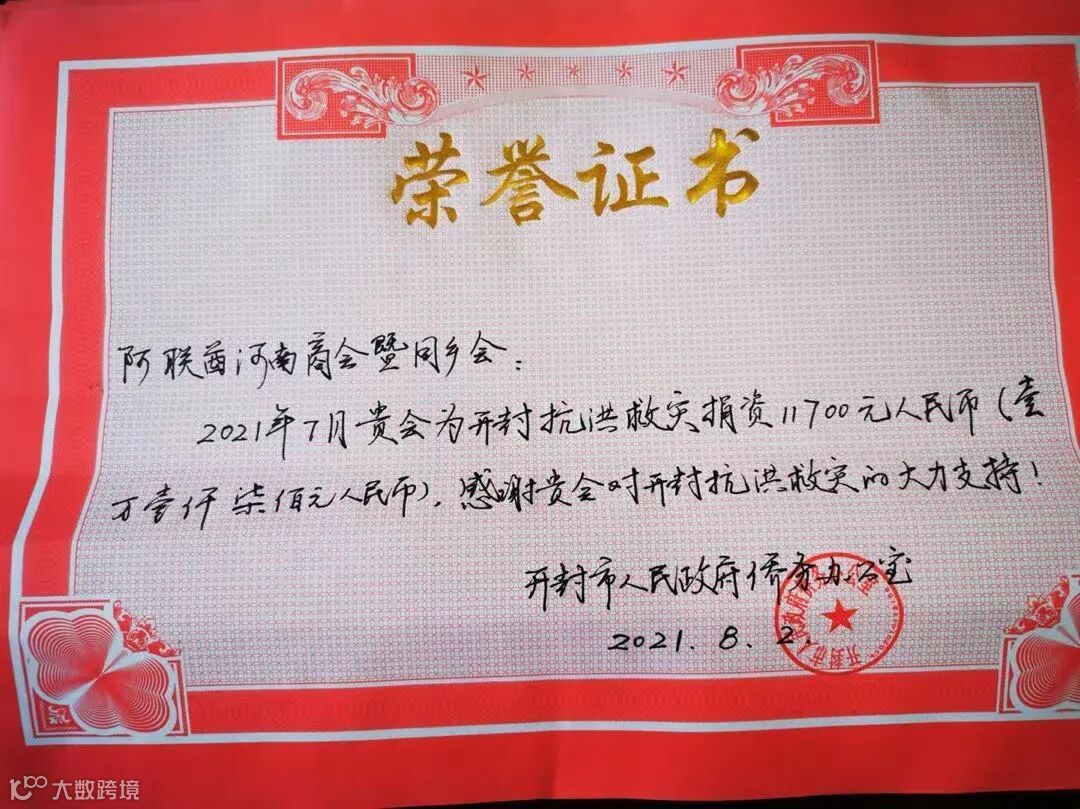 荣誉证书
阿联酋河南商会暨同乡会：
2021年7月贵会为开封抗洪救灾捐资11700元人民币（壹
万壹仟柒佰元人民币），感谢贵会对开封抗洪救灾的大力支持！
开封市人民政府侨务办公室
2021.8.2.
开封市人民政府侨务办公室
大数跨境